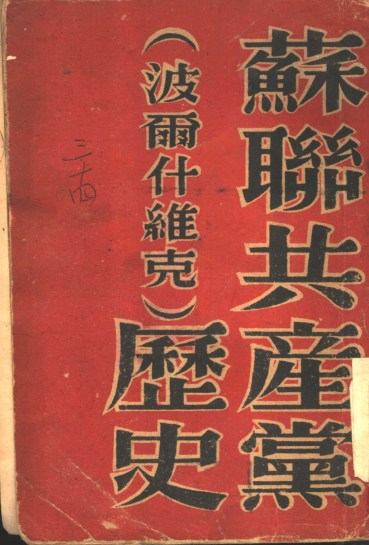 蘇聯共產黨
（波爾什維克）歷史